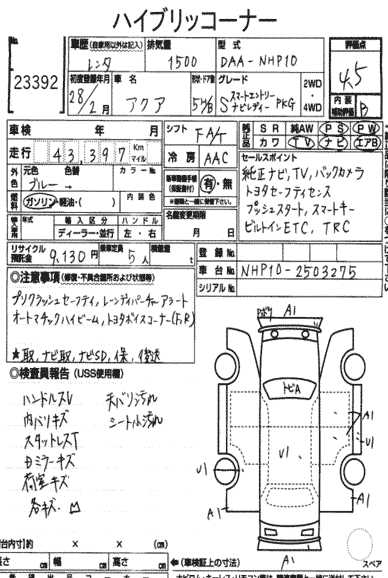 ハイブリッドコーナー
23392
車歴(自家用以外は記入) 排気量 型式
レンタ 1500 DAA-NHP10
初度登録年月 車名 形状・ドア数 グレード
28年2月 アクア 5 H/B S スマートエントリー ナビレディー PKG
2WD・4WD
評価点 4.5
内装補助評価 B
車検 年 月
走行 43,397 Km マイル
シフト FAT
冷房 AAC
装備品 SR 純AW PS PW
カワ TV ナビ エアB
外色 元色 色替 カラーNo.
ブルー →
ガソリン・軽油・( ) 内装色
有・無
名義変更期限
月 日
セールスポイント
純正ナビ,TV,バックカメラ
トヨタセーフティセンス
プッシュスタート,スマートキー
ビルトインETC,TRC
輸入車 年式 輸入区分 ハンドル
ディーラー・並行 左・右
リサイクル預託金 9,130円 乗車定員 5人 積載量 t
登録No.
車台No. NHP10-2503275
シリアルNo.
◎注意事項(修復・不具合箇所および状態等)
プリクラッシュセーフティ,レーンディパーチャーアラート
オートマチックハイビーム,トヨタボイスコーナー(F,R)
★取,ナビ取,ナビSD,保,後送
◎検査員報告(USS使用欄)
ハンドルスレ 天バリ汚れ
内バリキズ シート汚れ
スタットレスT
Bミラーキズ
荷室キズ
各キズ 凹
A1
トビA
U1
A1
U1
U1
A1
A1
A1
室内寸)約 × × (cm)
長さ cm 幅 cm 高さ cm
←(車検証上の寸法)
スペア